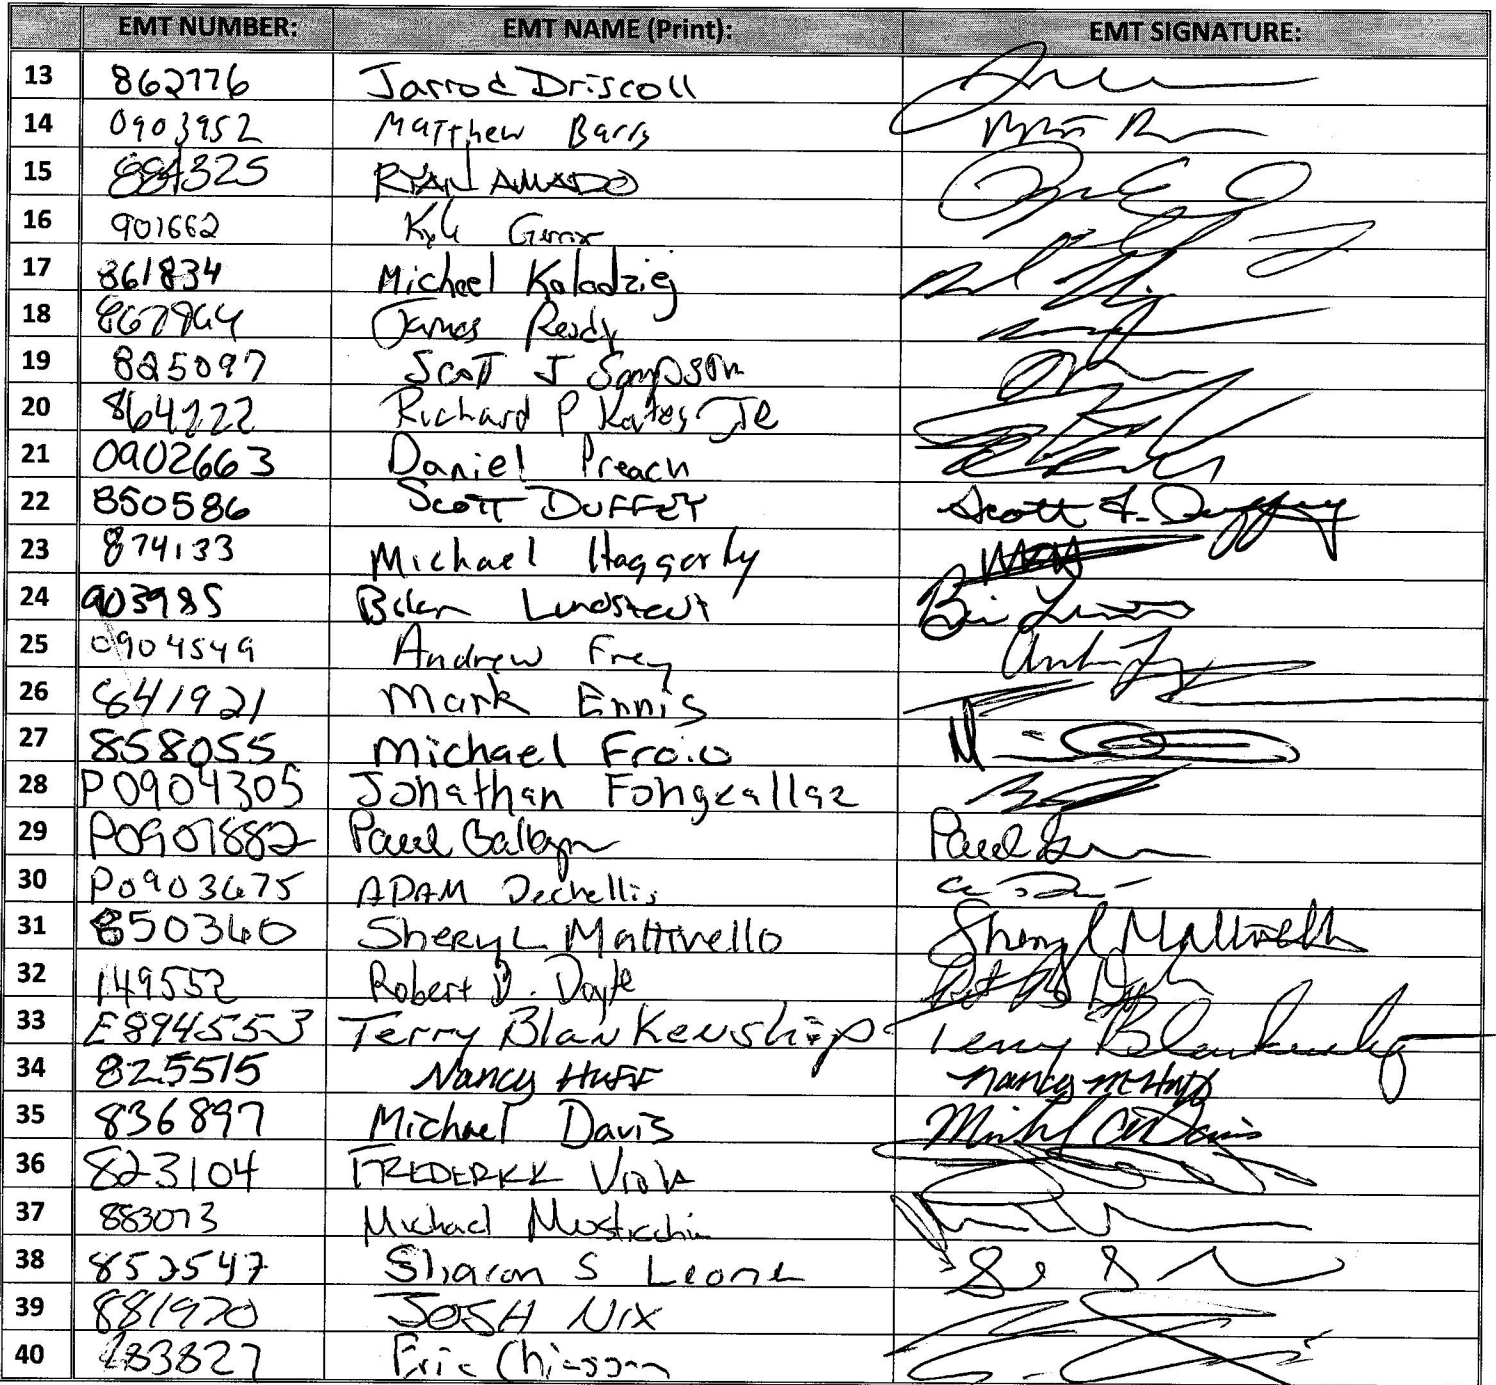 EMT NUMBER: EMT NAME (Print): EMT SIGNATURE:
13 862776 Jarrod Driscoll
14 0903952 Matthew Barry
15 884325 RYAN AMADO
16 901662 Kyle
17 861834 Michael Kolodziej
18 James Ready
19 825097 Scott J Sampson
20 864222 Richard P Kates JR
21 0902663 Daniel Preach
22 850586 Scott DUFFEY Scott F. Duffey
23 874133 Michael Haggerty
24 903985 Brian Lundstedt
25 0904549 Andrew Frey
26 841921 Mark Ennis
27 858055 Michael Froio
28 P0904305 Jonathan Fongeallaz
29 P0901882 Paul Paul
30 P0903675 ADAM Dechellis
31 850360 Sheryl Mattivello Sheryl Mattivello
32 149552 Robert D. Doyle
33 E894553 Terry Blankenship Terry Blankenship
34 825515 Nancy HUFF Nancy M Huff
35 836897 Michael Davis Michael Davis
36 823104 FREDERICK Viola
37 883073 Michael
38 852547 Sharon S Leone
39 881970 JOSH NIX
40 883827 Eric Chiasson